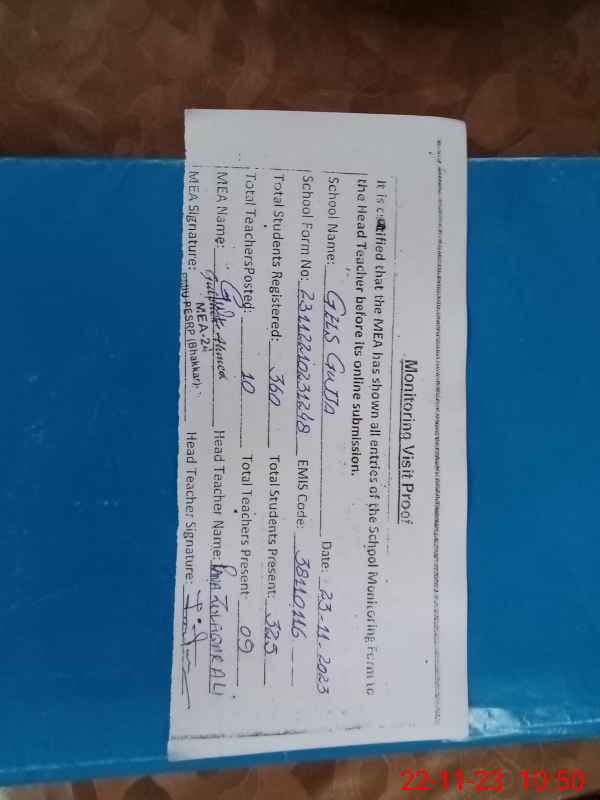 Monitoring Visit Proof
It is certified that the MEA has shown all entries of the School Monitoring Form to
the Head Teacher before its online submission.
School Name: GHS Gujja Date: 23-11-2023
School Form No: 23112210231248 EMIS Code: 38110116
Total Students Registered: 360 Total Students Present: 325
Total TeachersPosted: 10 Total Teachers Present: 09
MEA Name: Ahmed Head Teacher Name: ZULFIQAR ALI
MEA Signature: MEA-24 PESRP (Bhakkar) Head Teacher Signature:
22-11-23 10:50